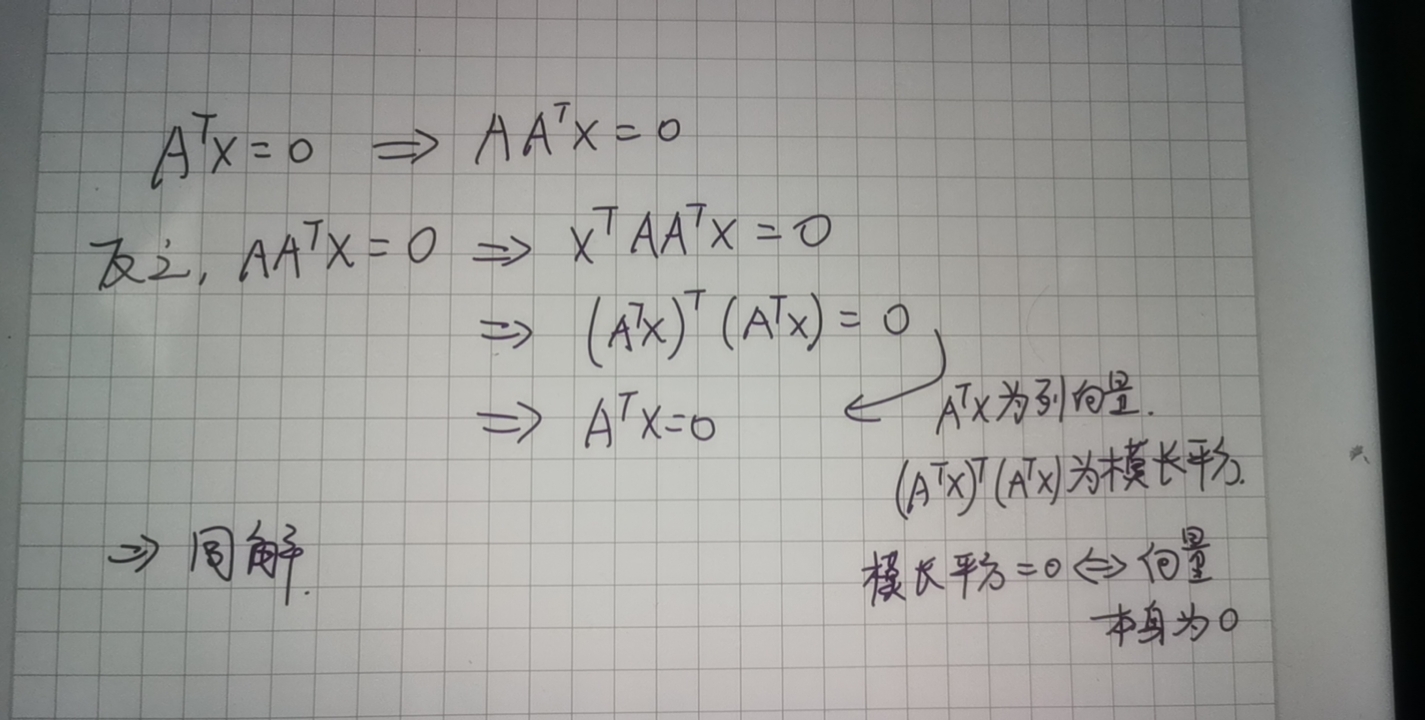 AᵀX=0 ⇒ AAᵀX=0
反之, AAᵀX=0 ⇒ XᵀAAᵀX=0
⇒ (AᵀX)ᵀ(AᵀX)=0
⇒ AᵀX=0
AᵀX为列向量.
(AᵀX)ᵀ(AᵀX)为模长平方.
模长平方=0⇔向量
本身为0
⇒ 同解.